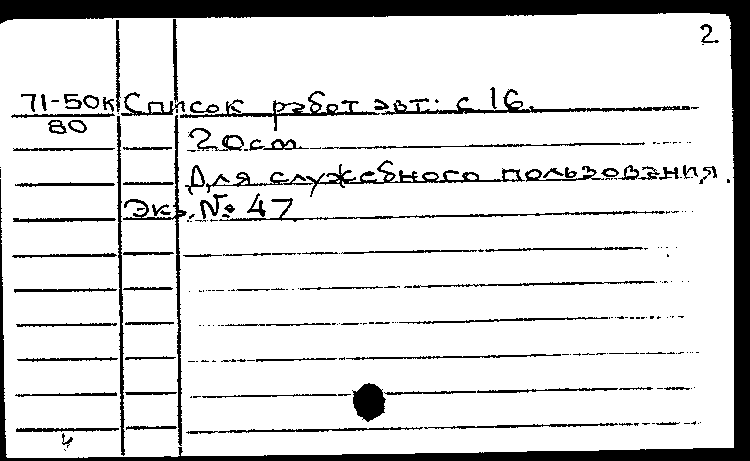 2.
71-50к Список работ авт: с 16.
80
20см
Для служебного пользования.
Экз. № 47
4